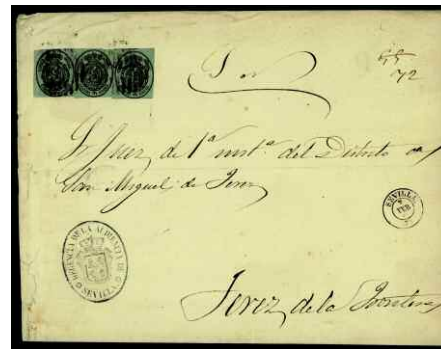 S. N.
72
Sr. Juez de 1ª instª del Distrito de
San Miguel de Jerez
SEVILLA
FEB
REGENCIA DE LA AUDIENCIA DE SEVILLA
Jerez de la Frontera